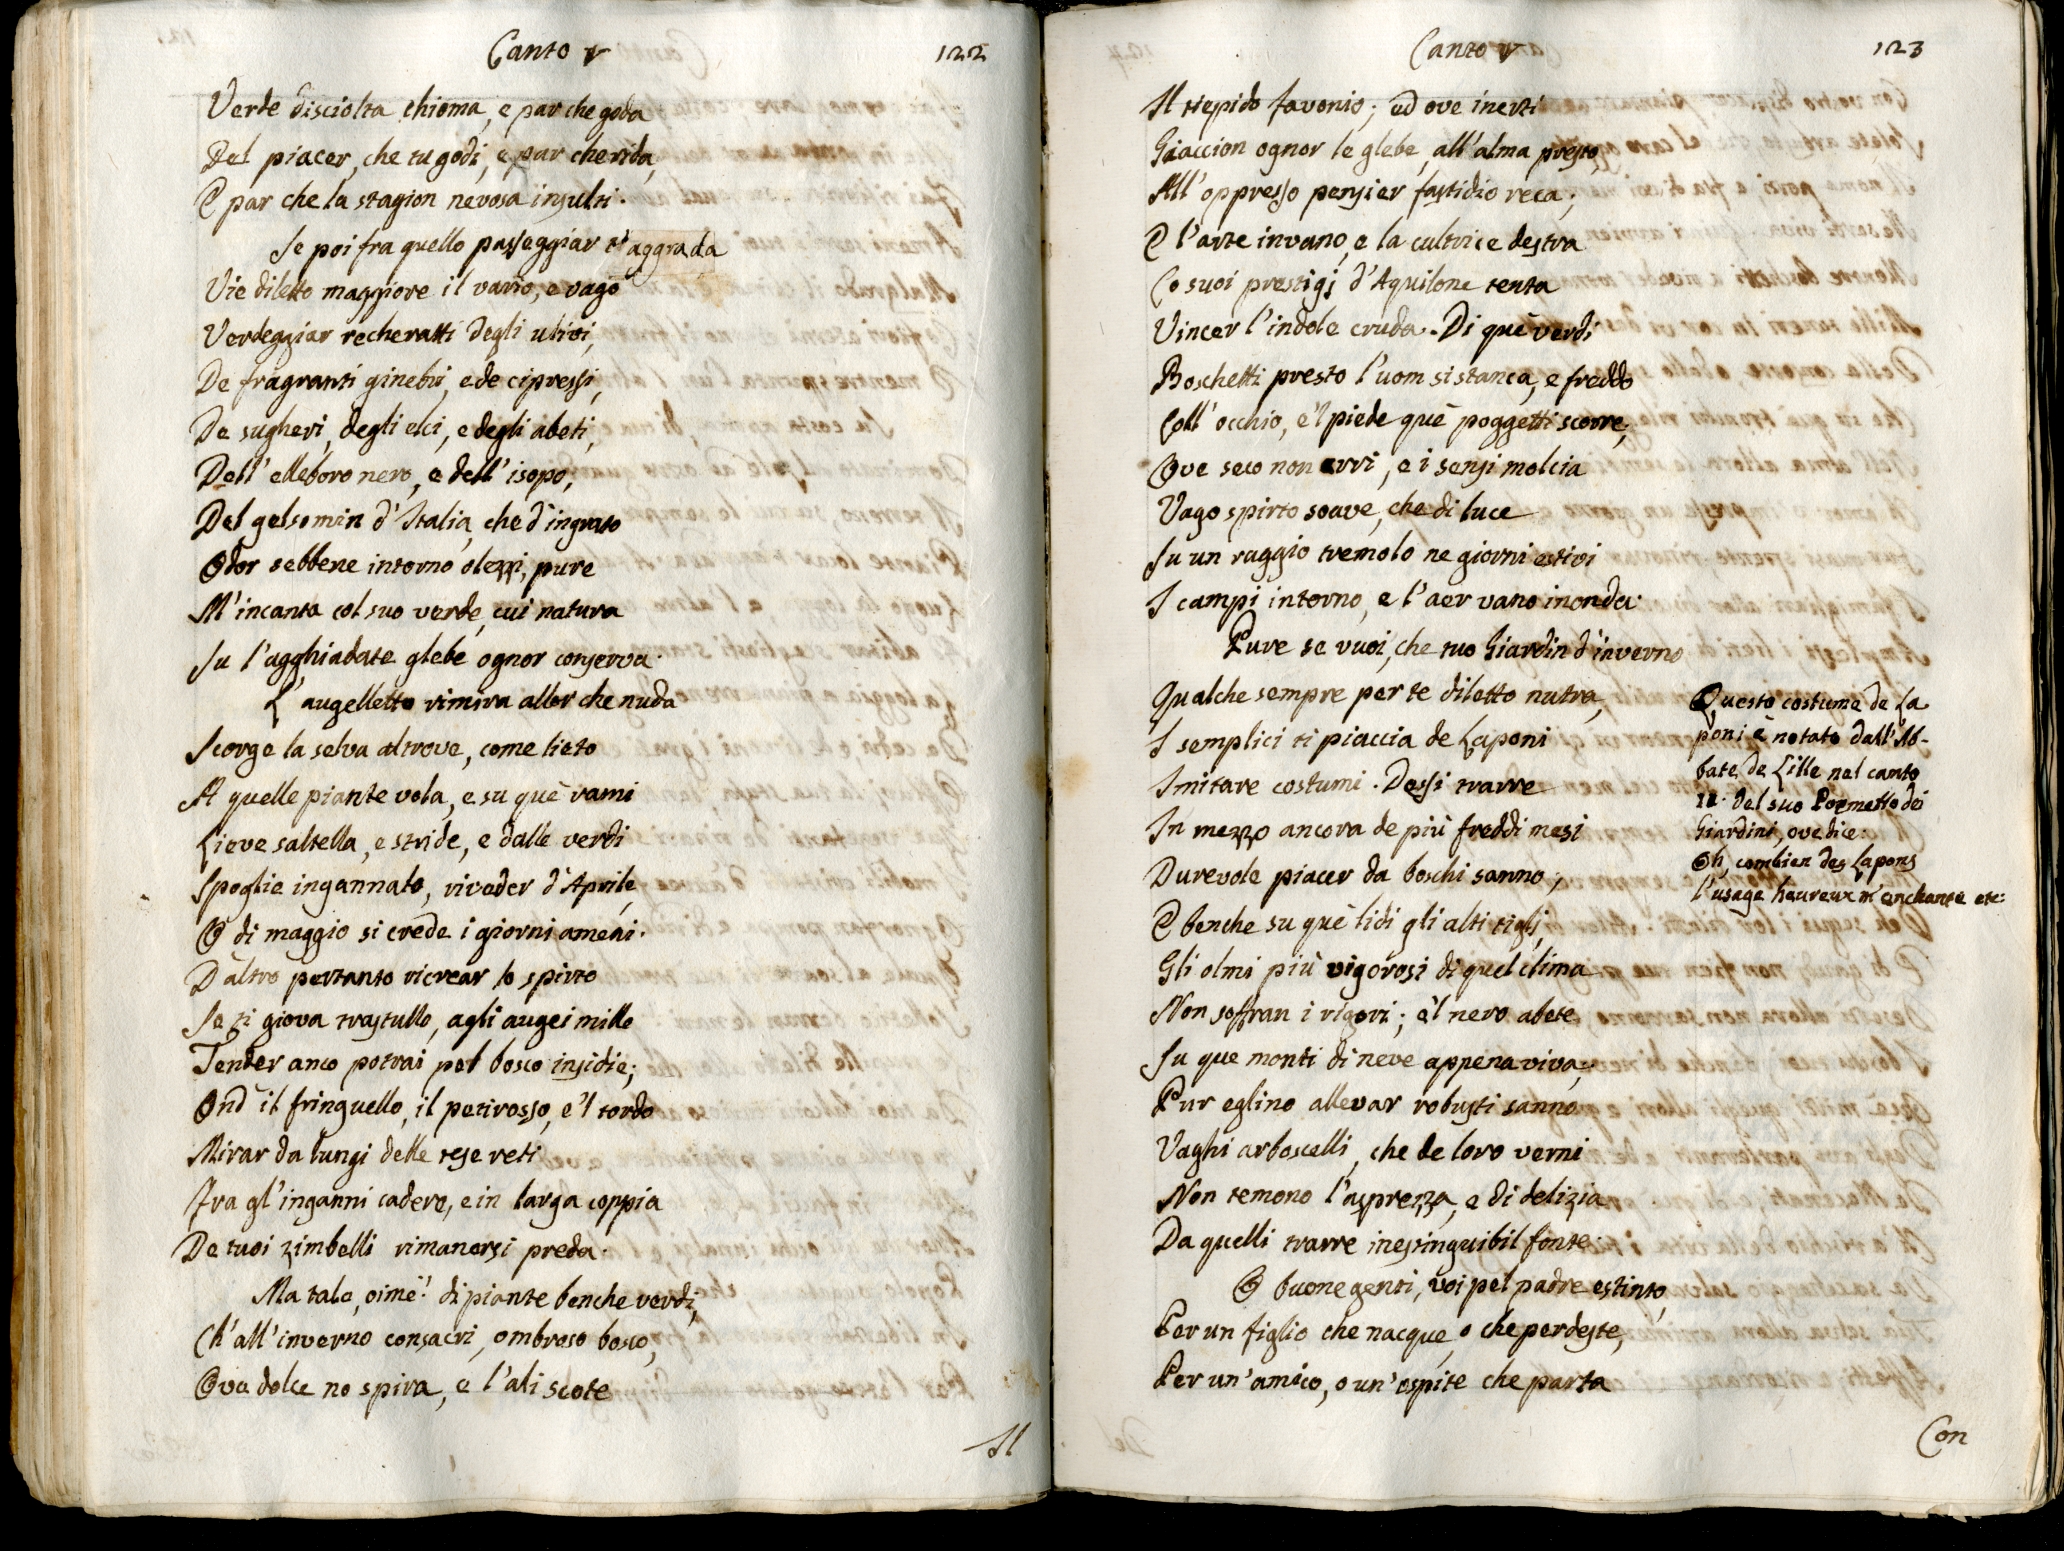 Canto V
122
Verde disciolta chioma, e par che goda
Del piacer, che tu godi, e par che rida,
E par che la stagion nevosa insulti.
Se poi fra quello passeggiar t'aggrada
Vie diletto maggiore il vario, e vago
Verdeggiar recheratti degli ulivi,
De fragranti ginebri, e de cipressi,
De sugheri, degli elci, e degli abeti,
Dell' elleboro nero, e dell' isopo,
Del gelsomin d'Italia, che d'ingrato
Odor sebbene intorno olezzi, pure
M'incanta col suo verde, cui natura
Su l'agghiadate glebe ognor conserva.
L'augelletto rimira allor che nuda
Scorge la selva altrove, come lieto
A quelle piante vola, e su què rami
Lieve saltella, e stride, e dalle verdi
Spoglie ingannato, riveder d'Aprile,
O di maggio si crede i giorni ameni.
D'altro pertanto ricrear lo spirto
Se ti giova trastullo, agli augei mille
Tender anco potrai pel bosco insidie;
Ond' il fringuello, il petirosso, e'l tordo
Mirar da lungi delle tese reti
Fra gl'inganni cadere, e in larga coppia
De tuoi zimbelli rimanersi preda.
Ma tale, oimè! di piante benche verdi,
Ch'all'inverno consacri, ombroso bosco,
Ove dolce no spira, e l'ali scote
Il
Canto V
123
Il tiepido favonio; ed ove inerti
Giaccion ognor le glebe, all'alma presto,
All'oppresso pensier fastidio reca;
E l'arte invano, e la cultrice destra
Co suoi prestigj d'Aquilone tenta
Vincer l'indole cruda. Di què verdi
Boschetti presto l'uom si stanca, e freddo
Coll'occhio, e'l piede què poggetti scorre,
Ove seco non erri, e i sensi molcia
Vago spirto soave, che di luce
Su un raggio tremolo ne giorni estivi
I campi intorno, e l'aer vano inonda.
Pure se vuoi, che tuo Giardin d'inverno
Qualche sempre per te diletto nutra,
I semplici ti piaccia de Laponi
Imitare costumi. Dessi trarre
In mezzo ancora de più freddi mesi
Durevole piacer da boschi sanno;
E benche su què lidi gli alti tigli,
Gli olmi più vigorosi di quel clima
Non soffran i rigori; e'l nero abete
Su que monti di neve appena viva;
Pur eglino allevar robusti sanno
Vaghi arboscelli, che de loro verni
Non temono l'asprezza, e di delizia
Da quelli trarre inestinguibil fonte.
O buone genti, voi pel padre estinto,
Per un figlio che nacque, o che perdeste,
Per un'amico, o un'ospite che parta
Questo costume de La
poni è notato dall'Ab-
bate de Lille nel canto
del suo Poemetto dei
Giardini, ove dice:
Oh, combien des Lapons
l'usage heureux m'enchante etc:
Con